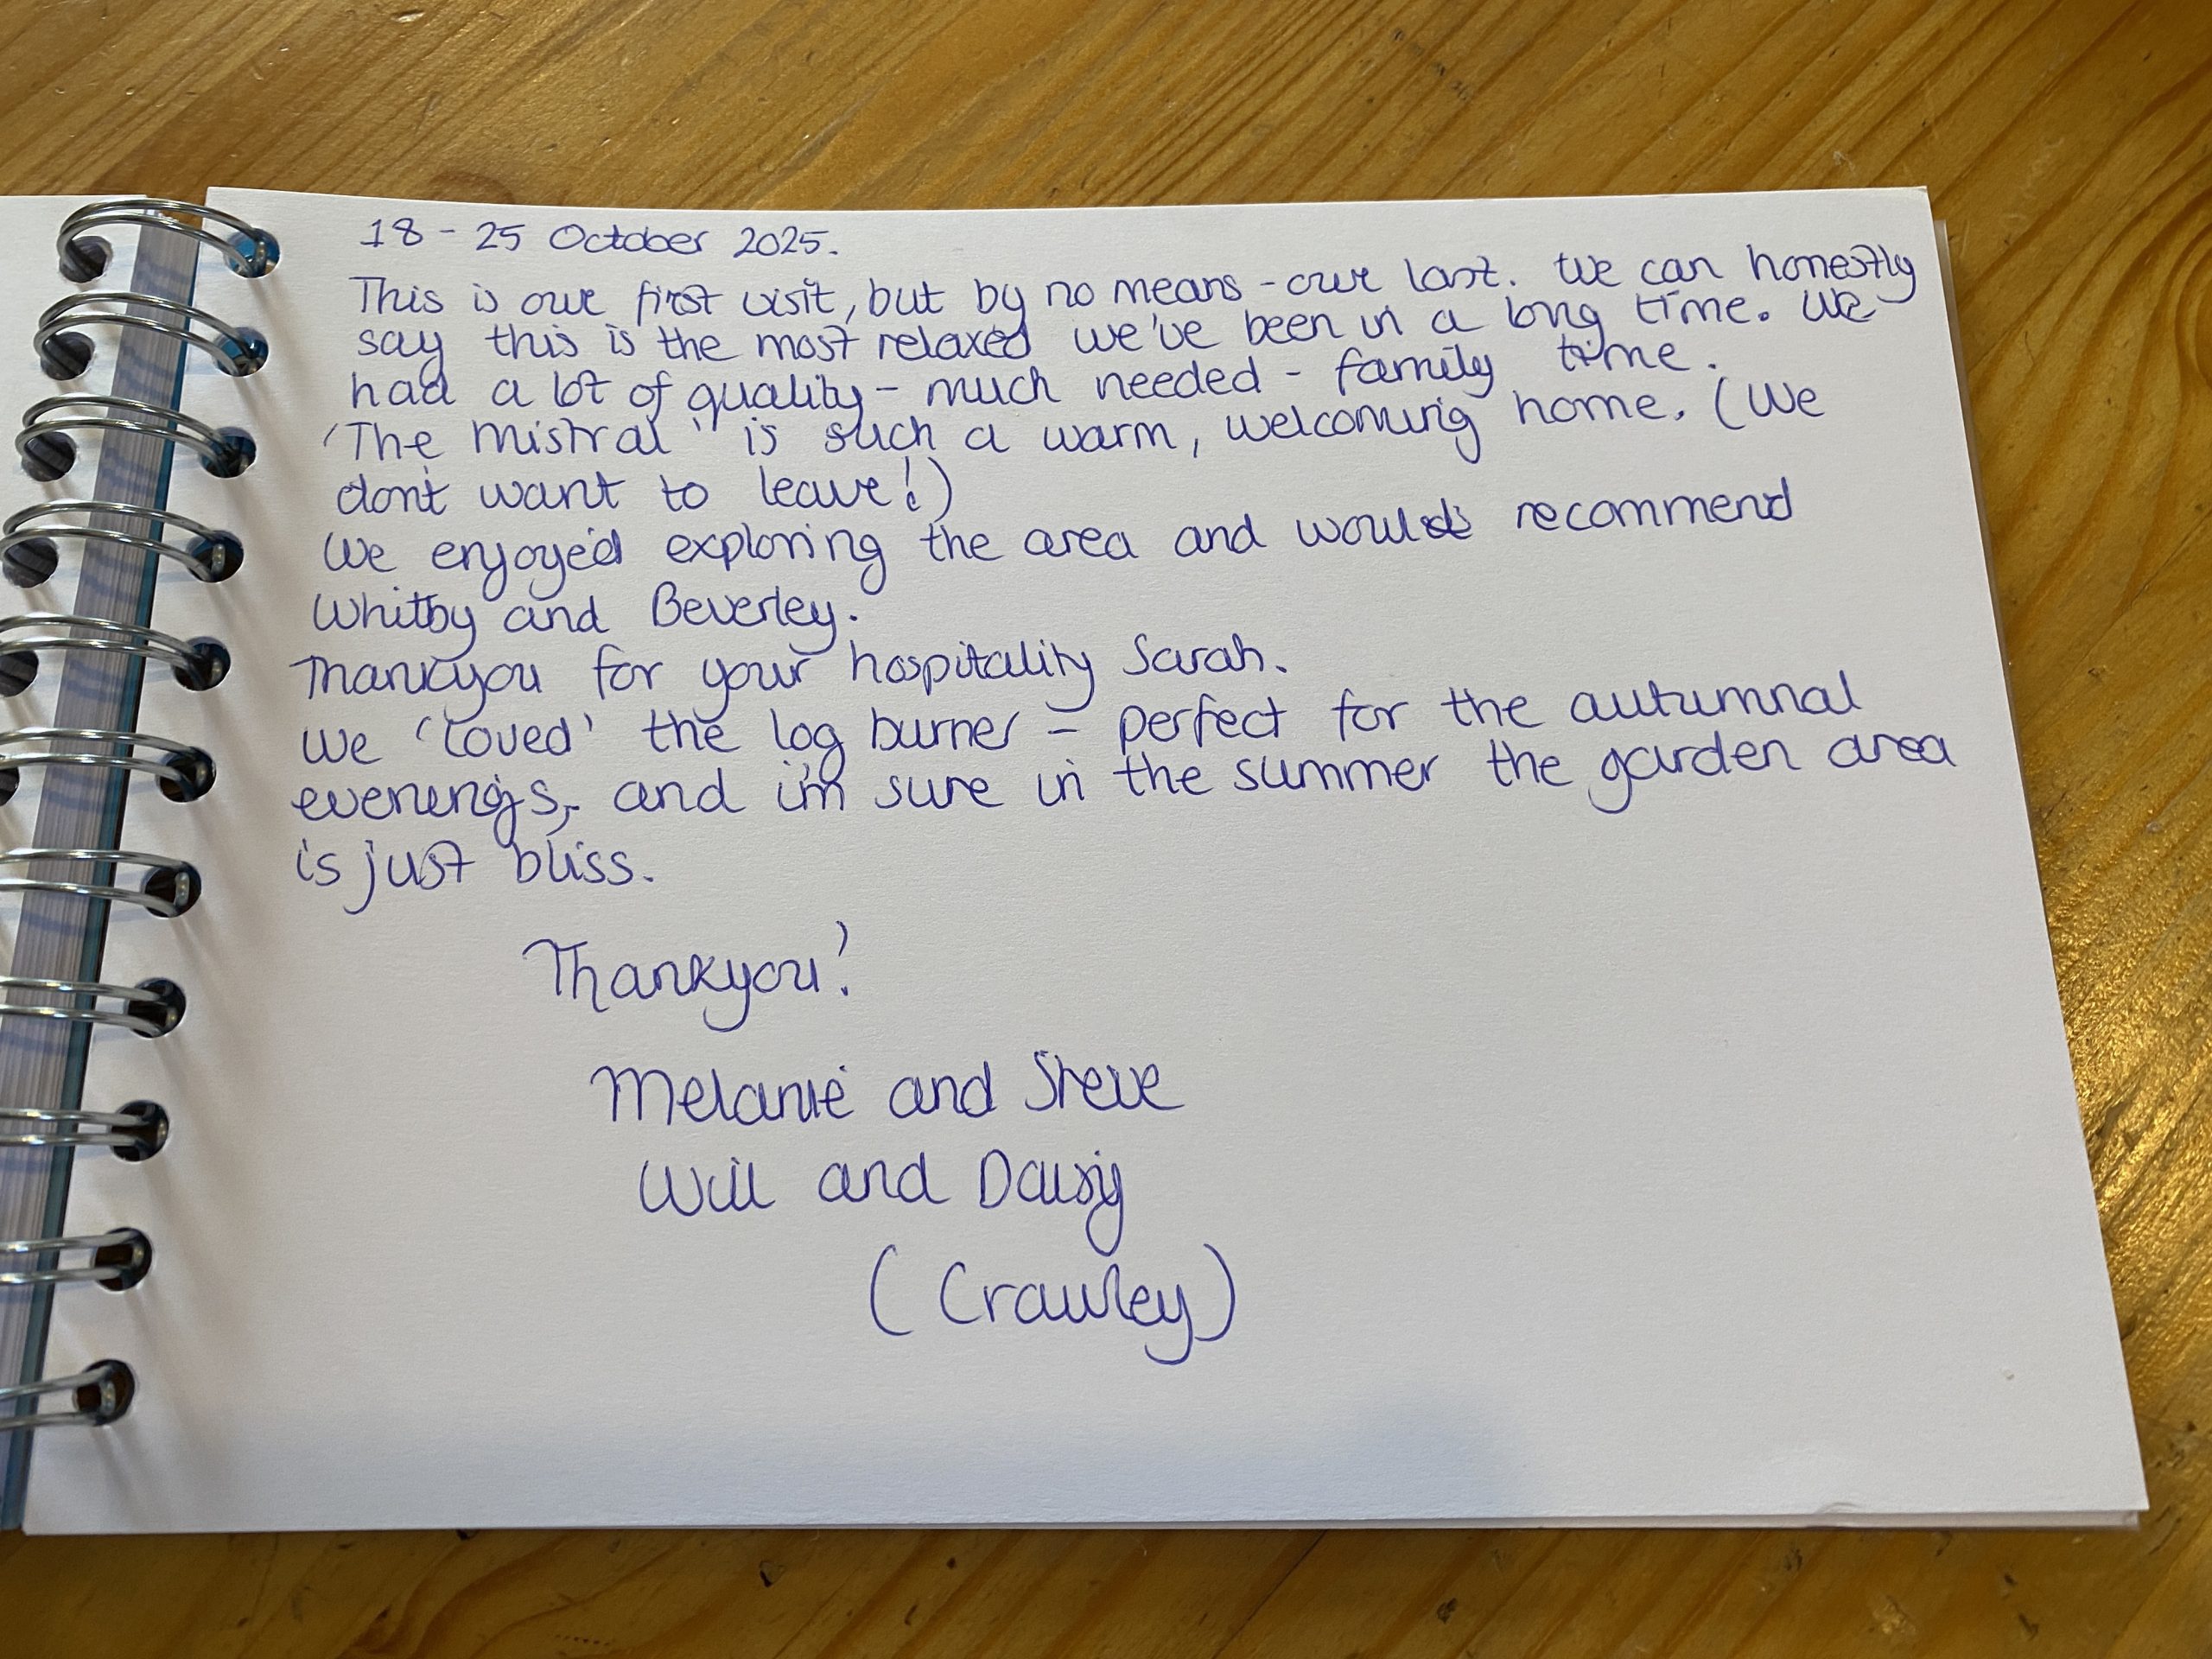 18 - 25 October 2025.
This is our first visit, but by no means - our last. We can honestly
say this is the most relaxed we've been in a long time. We
had a lot of quality - much needed - family time.
'The Mistral' is such a warm, welcoming home. (We
don't want to leave!)
We enjoyed exploring the area and would recommend
Whitby and Beverley.
Thankyou for your hospitality Sarah.
We 'loved' the log burner - perfect for the autumnal
evenings, and i'm sure in the summer the garden area
is just bliss.
Thankyou!
Melanie and Steve
Will and Daisy
(Crawley)